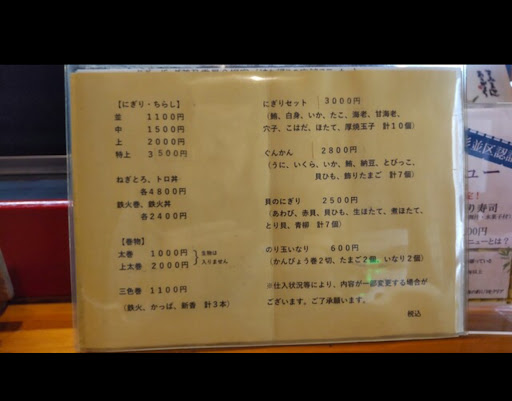 【にぎり・ちらし】
並 1100円
中 1500円
上 2000円
特上 3500円
ねぎとろ、トロ丼
各4800円
鉄火巻、鉄火丼
各2400円
【巻物】
太巻 1000円
上太巻 2000円
生物は
入りません
三色巻 1100円
(鉄火、かっぱ、新香 計3本)
にぎりセット 3000円
(鮪、白身、いか、たこ、海老、甘海老、
穴子、こはだ、ほたて、厚焼玉子 計10個)
ぐんかん 2800円
(うに、いくら、いか、鮪、納豆、とびっこ、
貝ひも、飾りたまご 計7個)
貝のにぎり 2500円
(あわび、赤貝、貝ひも、生ほたて、煮ほたて、
とり貝、青柳 計7個)
のり玉いなり 600円
(かんぴょう巻2切、たまご2個、いなり2個)
※仕入状況等により、内容が一部変更する場合が
ございます。ご了承願います。
税込
杉並区認
ュー
り寿司
00円
ニューとは?